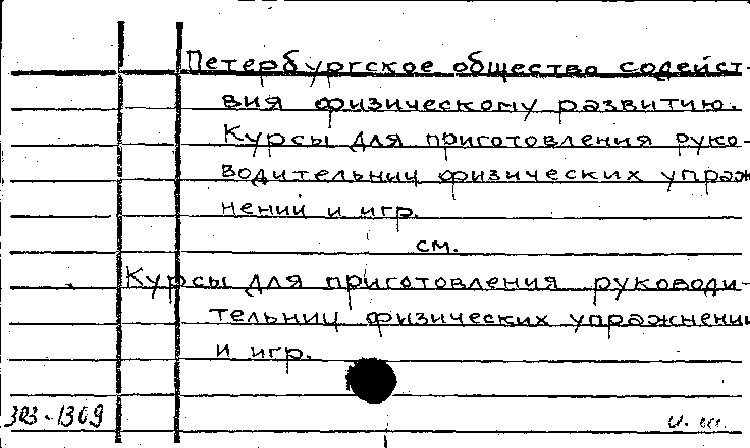 Петербургское общество содейст-
вия физическому развитию.
Курсы для приготовления руко-
водительниц физических упраж
нений и игр.
см.
Курсы для приготовления руководи-
тельниц физических упражнений
и игр.
303-1309